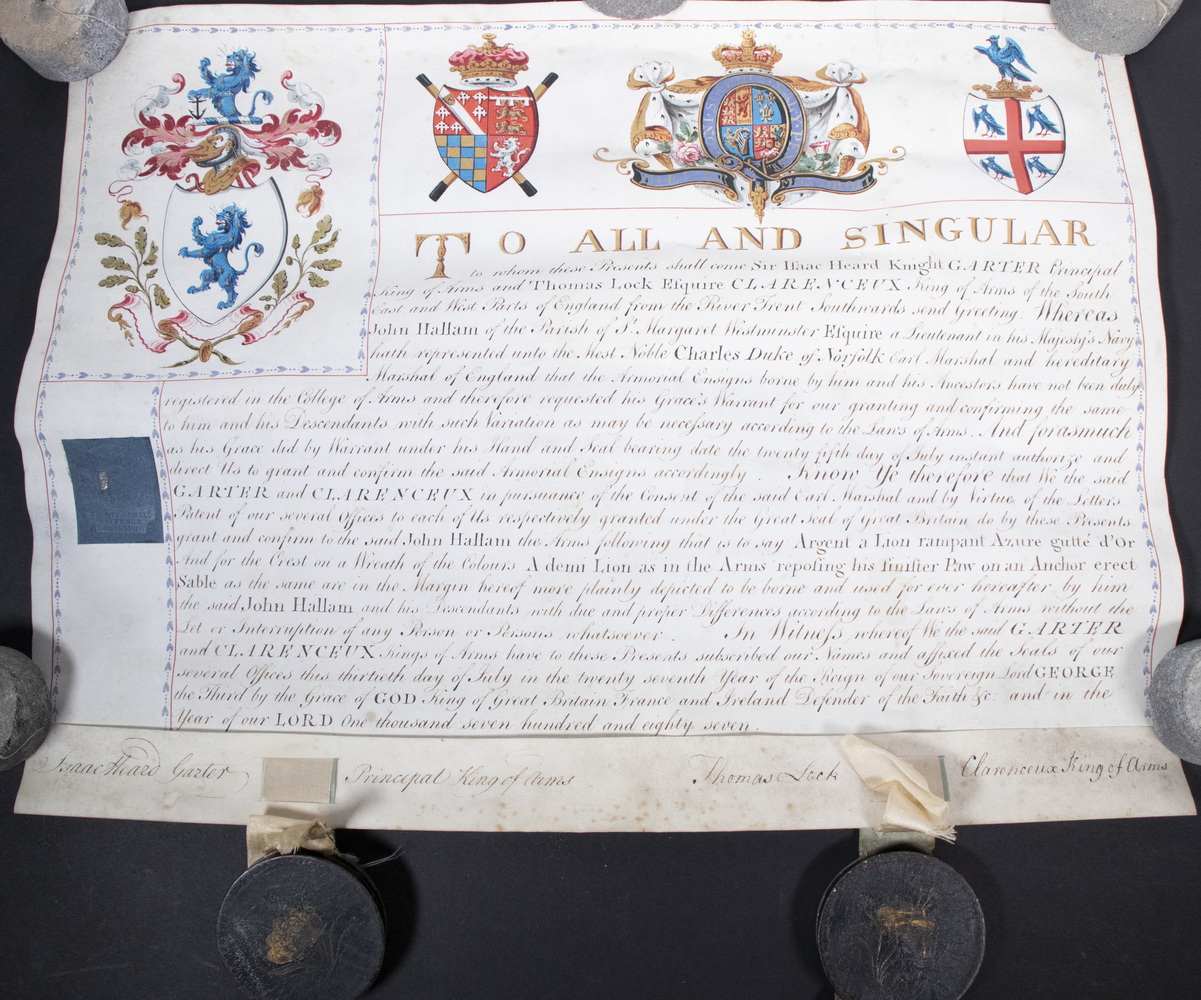 TO ALL AND SINGULAR
to whom these Presents shall come Sir Isaac Heard Knight GARTER Principal
King of Arms and Thomas Lock Esquire CLARENCEUX King of Arms of the South
East and West Parts of England from the River Trent Southwards send Greeting. Whereas
John Hallam of the Parish of St. Margaret Westminster Esquire a Lieutenant in his Majesty's Navy
hath represented unto the Most Noble Charles Duke of Norfolk Earl Marshal and hereditary
Marshal of England that the Armorial Ensigns borne by him and his Ancestors have not been duly
registered in the College of Arms and therefore requested his Grace's Warrant for our granting and confirming the same
to him and his Descendants with such Variation as may be necessary according to the Laws of Arms. And forasmuch
as his Grace did by Warrant under his Hand and Seal bearing date the twenty fifth day of July instant authorize and
direct Us to grant and confirm the said Armorial Ensigns accordingly. Know Ye therefore that We the said
GARTER and CLARENCEUX in pursuance of the Consent of the said Earl Marshal and by Virtue of the Letters
Patent of our several Offices to each of Us respectively granted under the Great Seal of Great Britain do by these Presents
grant and confirm to the said John Hallam the Arms following that is to say Argent a Lion rampant Azure gutté d'Or
And for the Crest on a Wreath of the Colours A demi Lion as in the Arms reposing his sinister Paw on an Anchor erect
Sable as the same are in the Margin hereof more plainly depicted to be borne and used for ever hereafter by him
the said John Hallam and his Descendants with due and proper Differences according to the Laws of Arms without the
Let or Interruption of any Person or Persons whatsoever. In Witness whereof We the said GARTER
and CLARENCEUX Kings of Arms have to these Presents subscribed our Names and affixed the Seals of our
several Offices this thirtieth day of July in the twenty seventh Year of the Reign of our Sovereign Lord GEORGE
the Third by the Grace of GOD King of Great Britain France and Ireland Defender of the Faith &c. and in the
Year of our LORD One thousand seven hundred and eighty seven.
Isaac Heard Garter Principal King of Arms Thomas Lock Clarenceux King of Arms